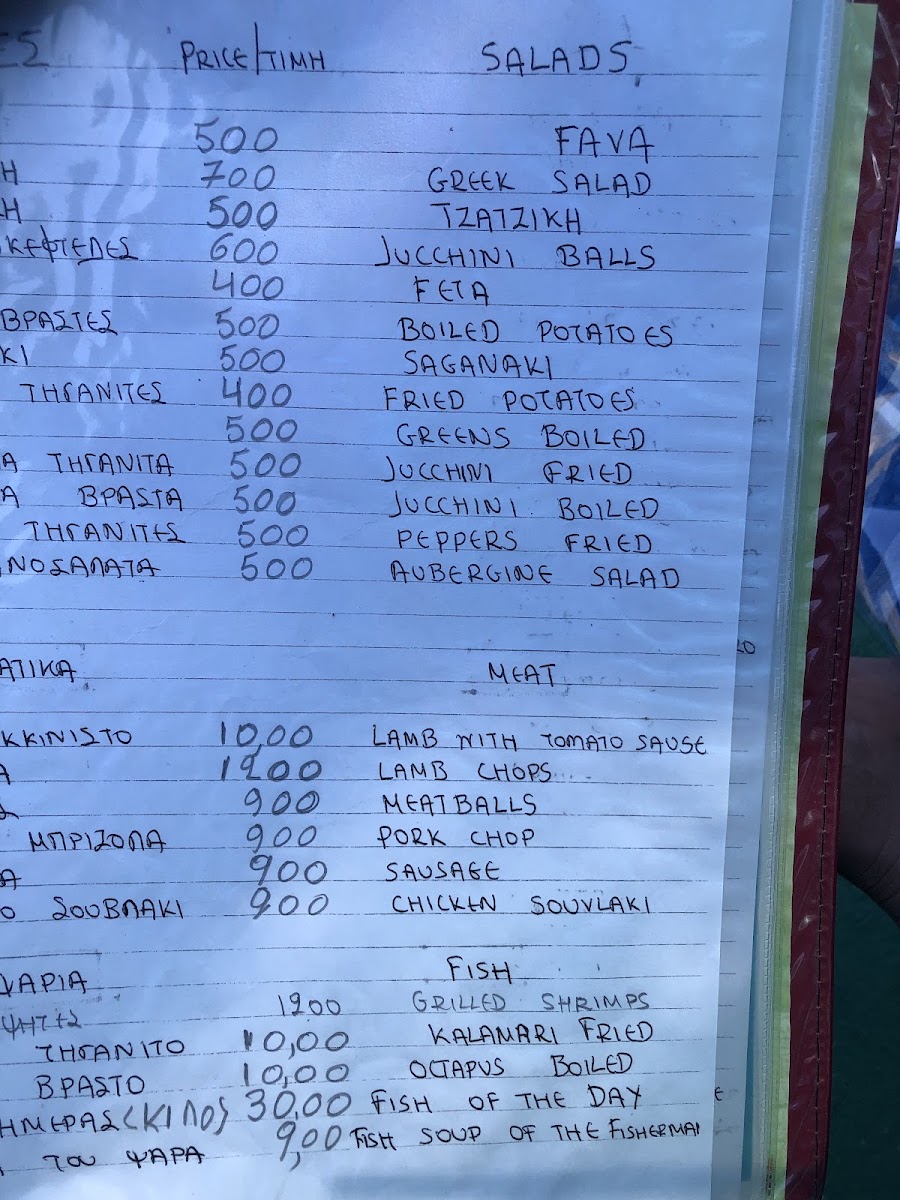 ES PRICE/TIMH SALADS
500 FAVA
Η 700 GREEK SALAD
ΚΗ 500 TZATZIKH
ΚΕΦΤΕΔΕΣ 600 JUCCHINI BALLS
400 FETA
ΒΡΑΣΤΕΣ 500 BOILED POTATOES
ΚΙ 500 SAGANAKI
ΤΗΓΑΝΙΤΕΣ 400 FRIED POTATOES
500 GREENS BOILED
Α ΤΗΓΑΝΙΤΑ 500 JUCCHINI FRIED
Α ΒΡΑΣΤΑ 500 JUCCHINI BOILED
ΤΗΓΑΝΙΤΕΣ 500 PEPPERS FRIED
ΝΟΣΑΛΑΤΑ 500 AUBERGINE SALAD
ΑΤΙΚΑ MEAT
ΚΚΙΝΙΣΤΟ 10,00 LAMB WITH TOMATO SAUSE
Α 1200 LAMB CHOPS
900 MEATBALLS
ΜΠΡΙΖΟΛΑ 900 PORK CHOP
Α 900 SAUSAGE
Ο ΣΟΥΒΛΑΚΙ 900 CHICKEN SOUVLAKI
ΨΑΡΙΑ FISH
ΨΗΤΕΣ 1200 GRILLED SHRIMPS
ΤΗΓΑΝΙΤΟ 10,00 KALAMARI FRIED
ΒΡΑΣΤΟ 10,00 OCTAPUS BOILED
ΗΜΕΡΑΣ (ΚΙΛΟ) 30,00 FISH OF THE DAY
ΤΟΥ ΨΑΡΑ 9,00 FISH SOUP OF THE FISHERMAN